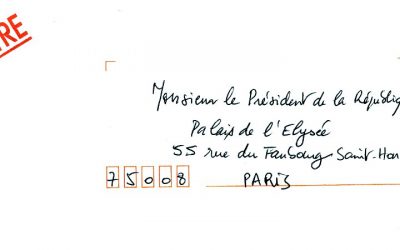 RE
Monsieur le Président de la Républiq
Palais de l'Elysée
55 rue du Faubourg Saint-Hon
75008 PARIS